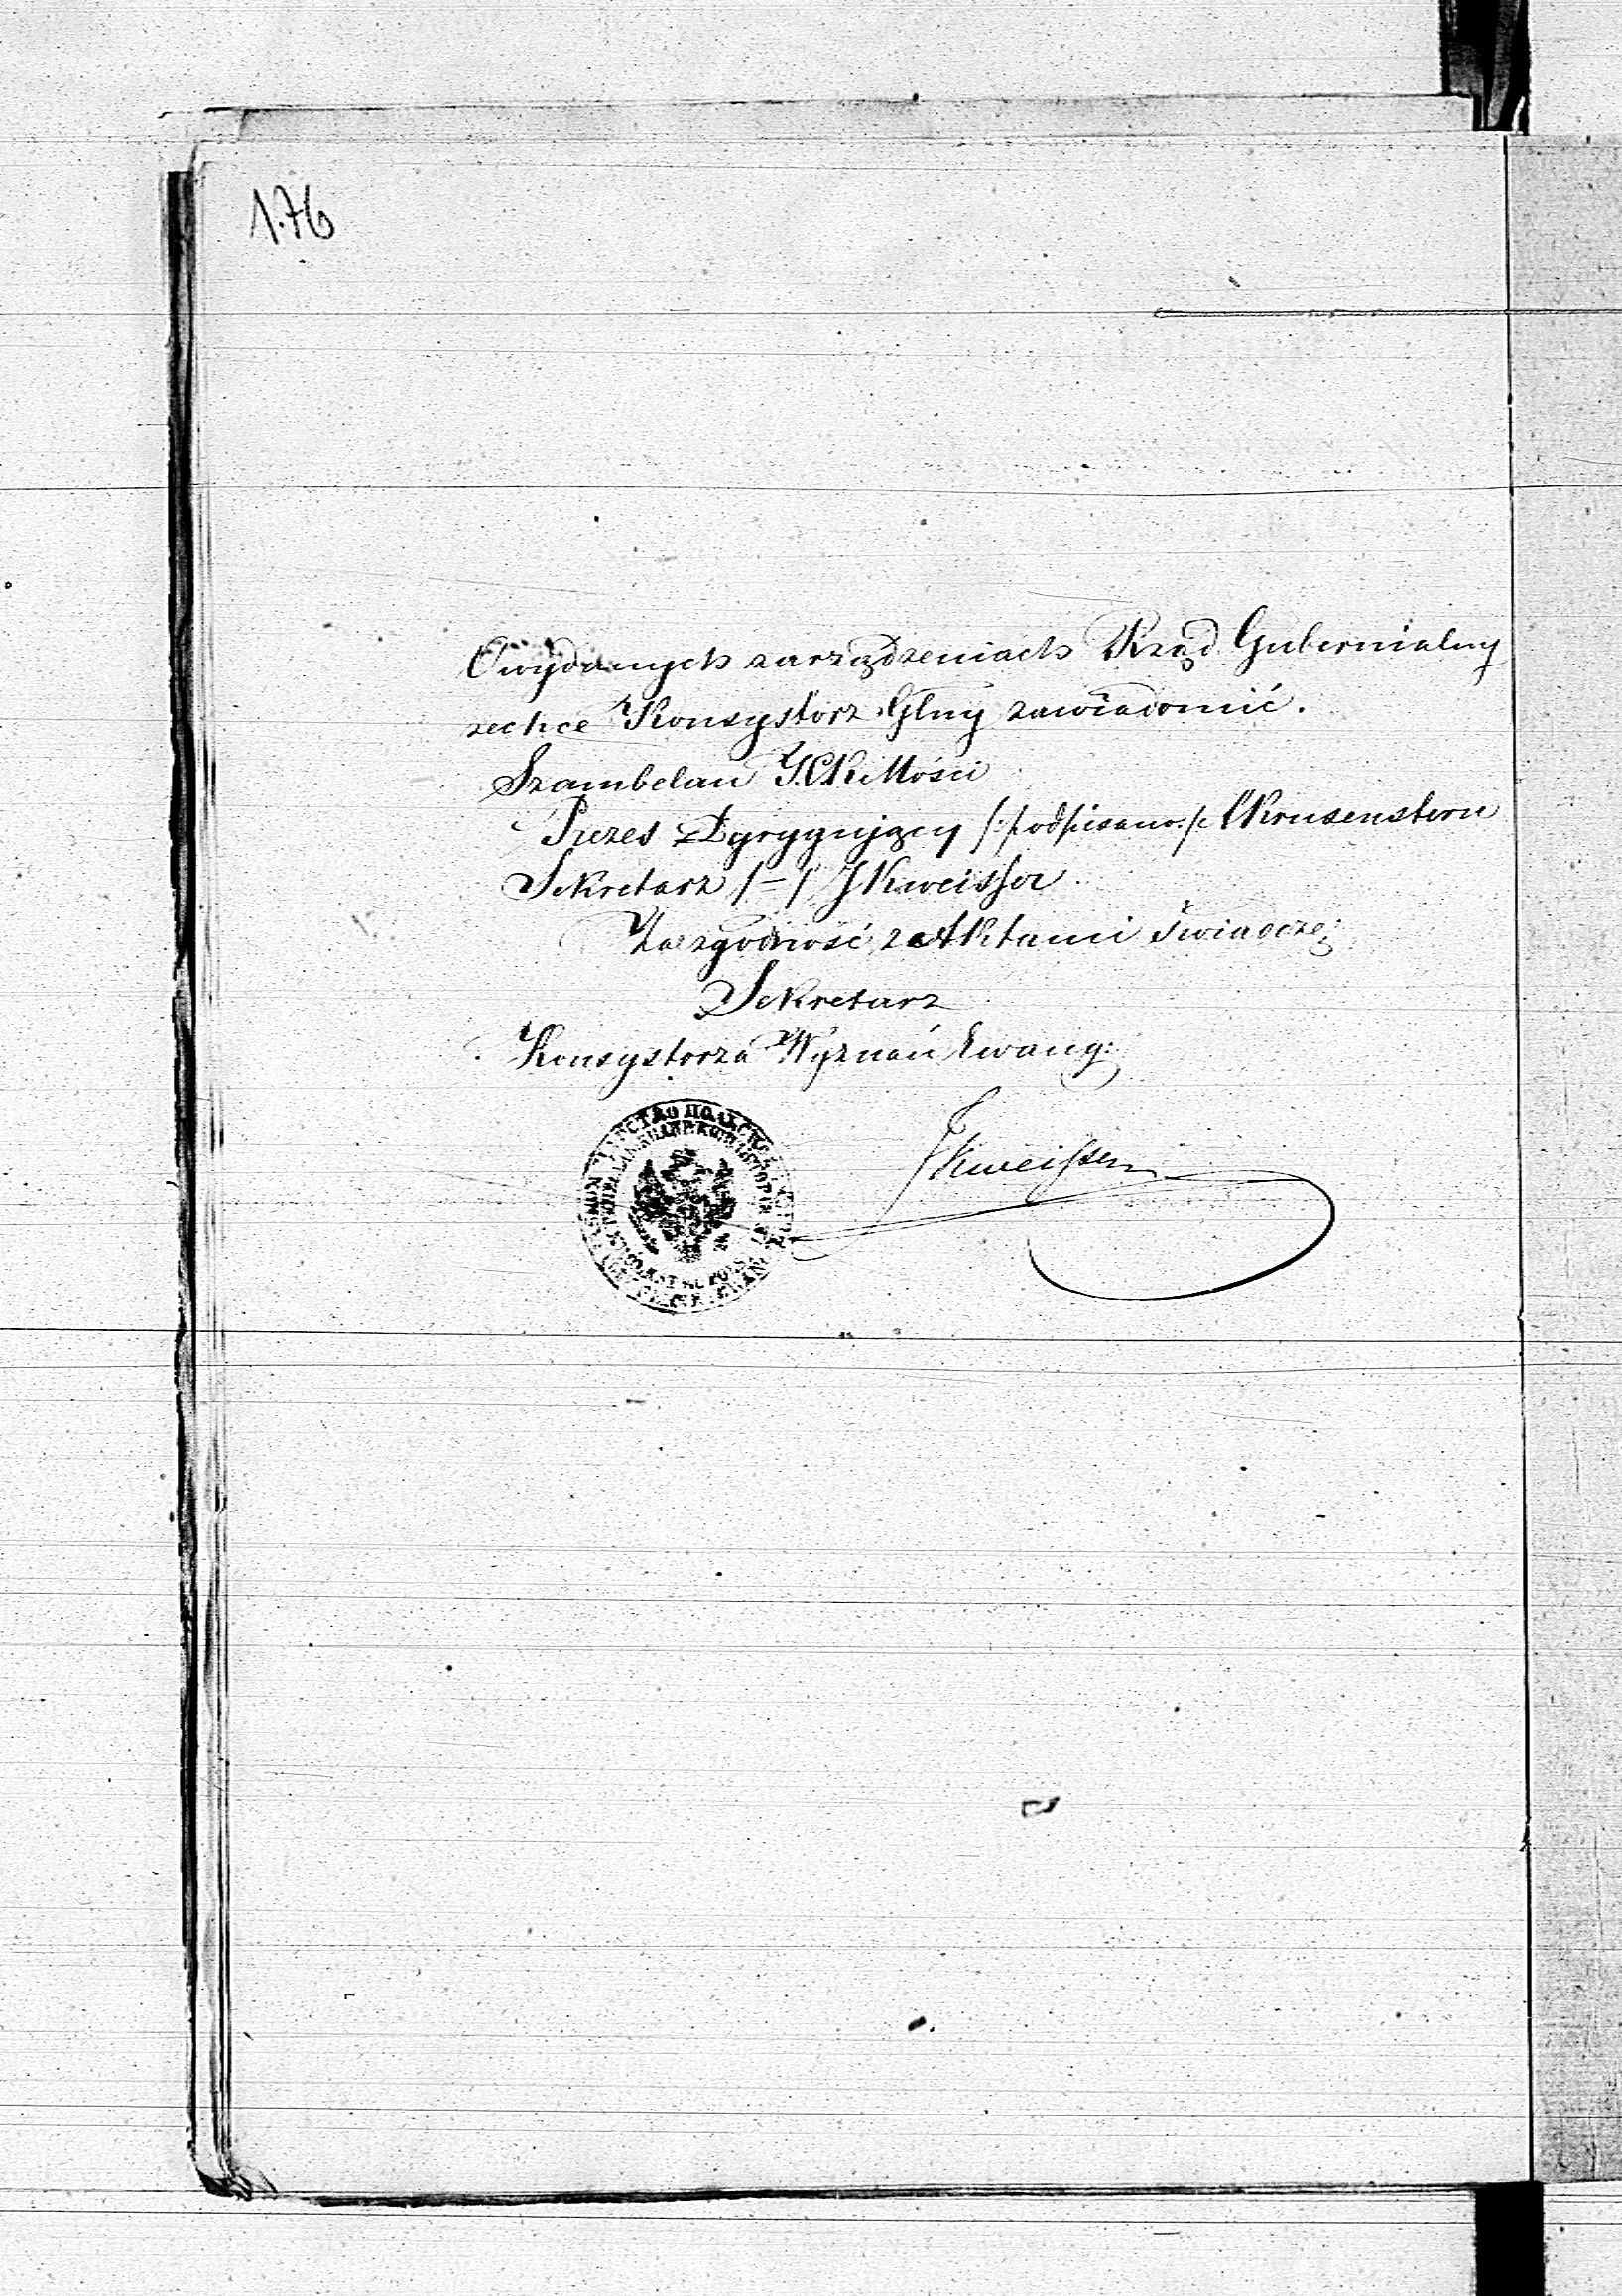 176
O wydanych zarządzeniach Rząd Gubernialny
zechce Konsystorz Glny zawiadomić.
Szambelan J.C.K. Mości
Prezes Dyrygujący /:podpisano:/ Krusenstern
Sekretarz /-/ J Kweisser
Za zgodność z Aktami świadczę:
Sekretarz
Konsystorza Wyznań Ewang:
JKweisser